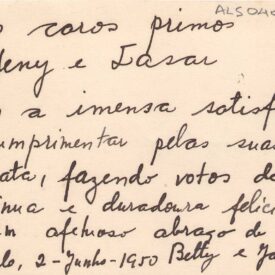 ALS040
s caros primos
eny e Lasar
s a imensa satisf
umprimentar pelas suas
ata, fazendo votos de
inua e duradoura felici
m afetuoso abraço de
lo, 2-Junho-1950 Betty e Ja